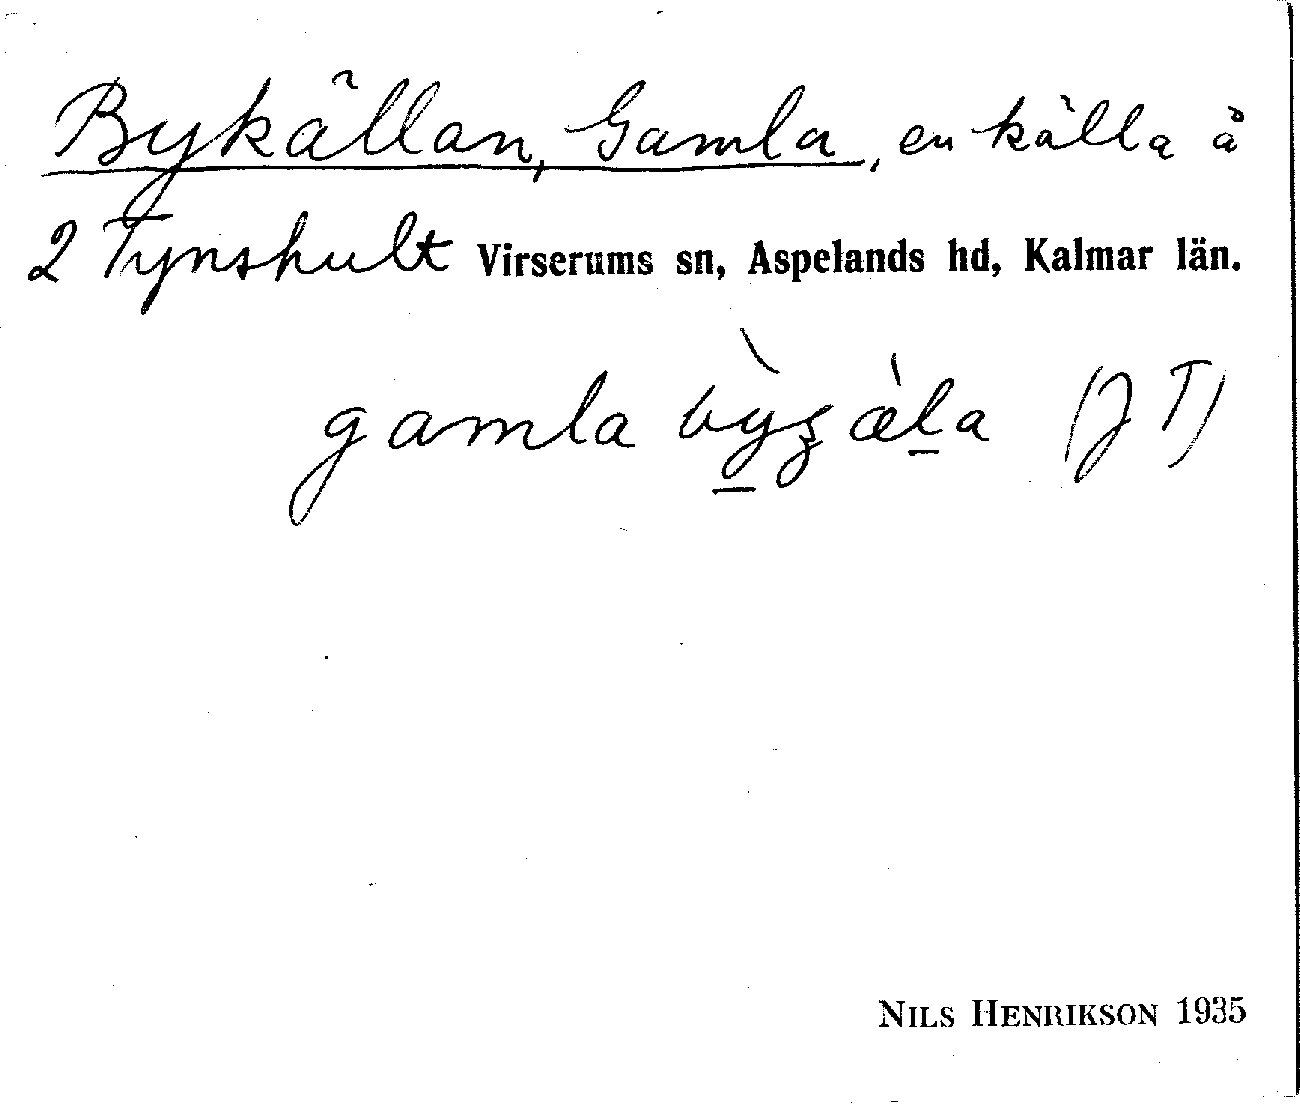 Bykällan, Gamla, en källa å
2 Tynshult Virserums sn, Aspelands hd, Kalmar län.
gamla bỳʒæ̀la (JT)
NILS HENRIKSON 1935